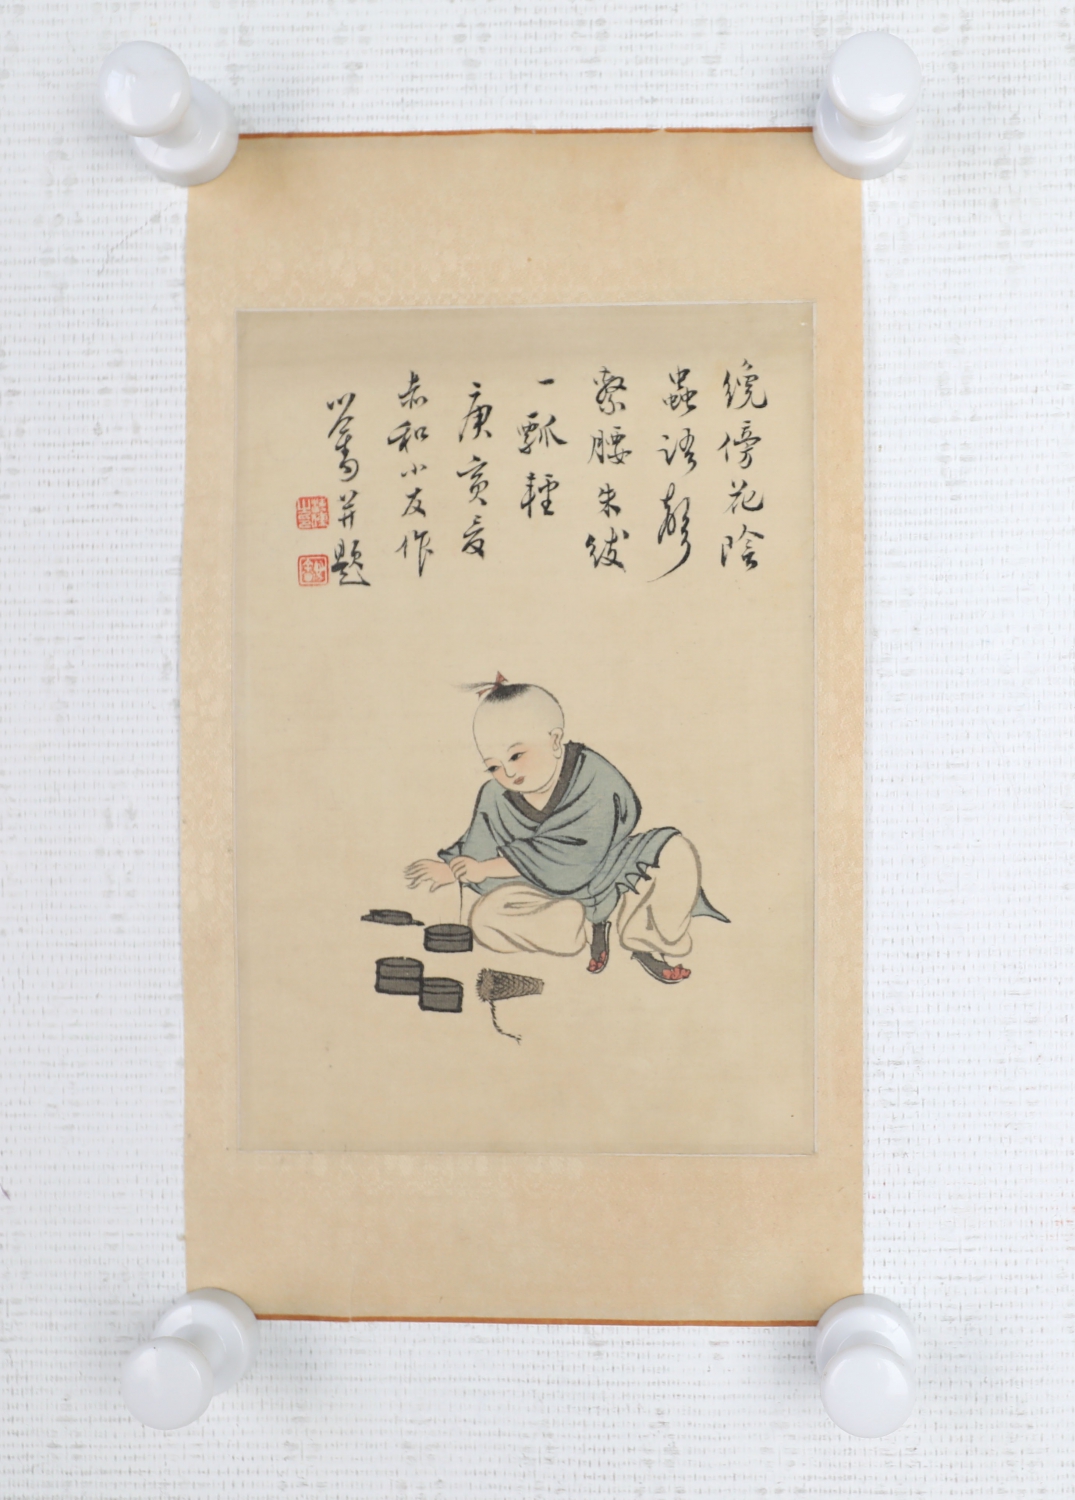 繞傍花陰
蟲語聲
繫腰朱紱
一瓢輕
庚寅爰
赤和小友作
心畬并題